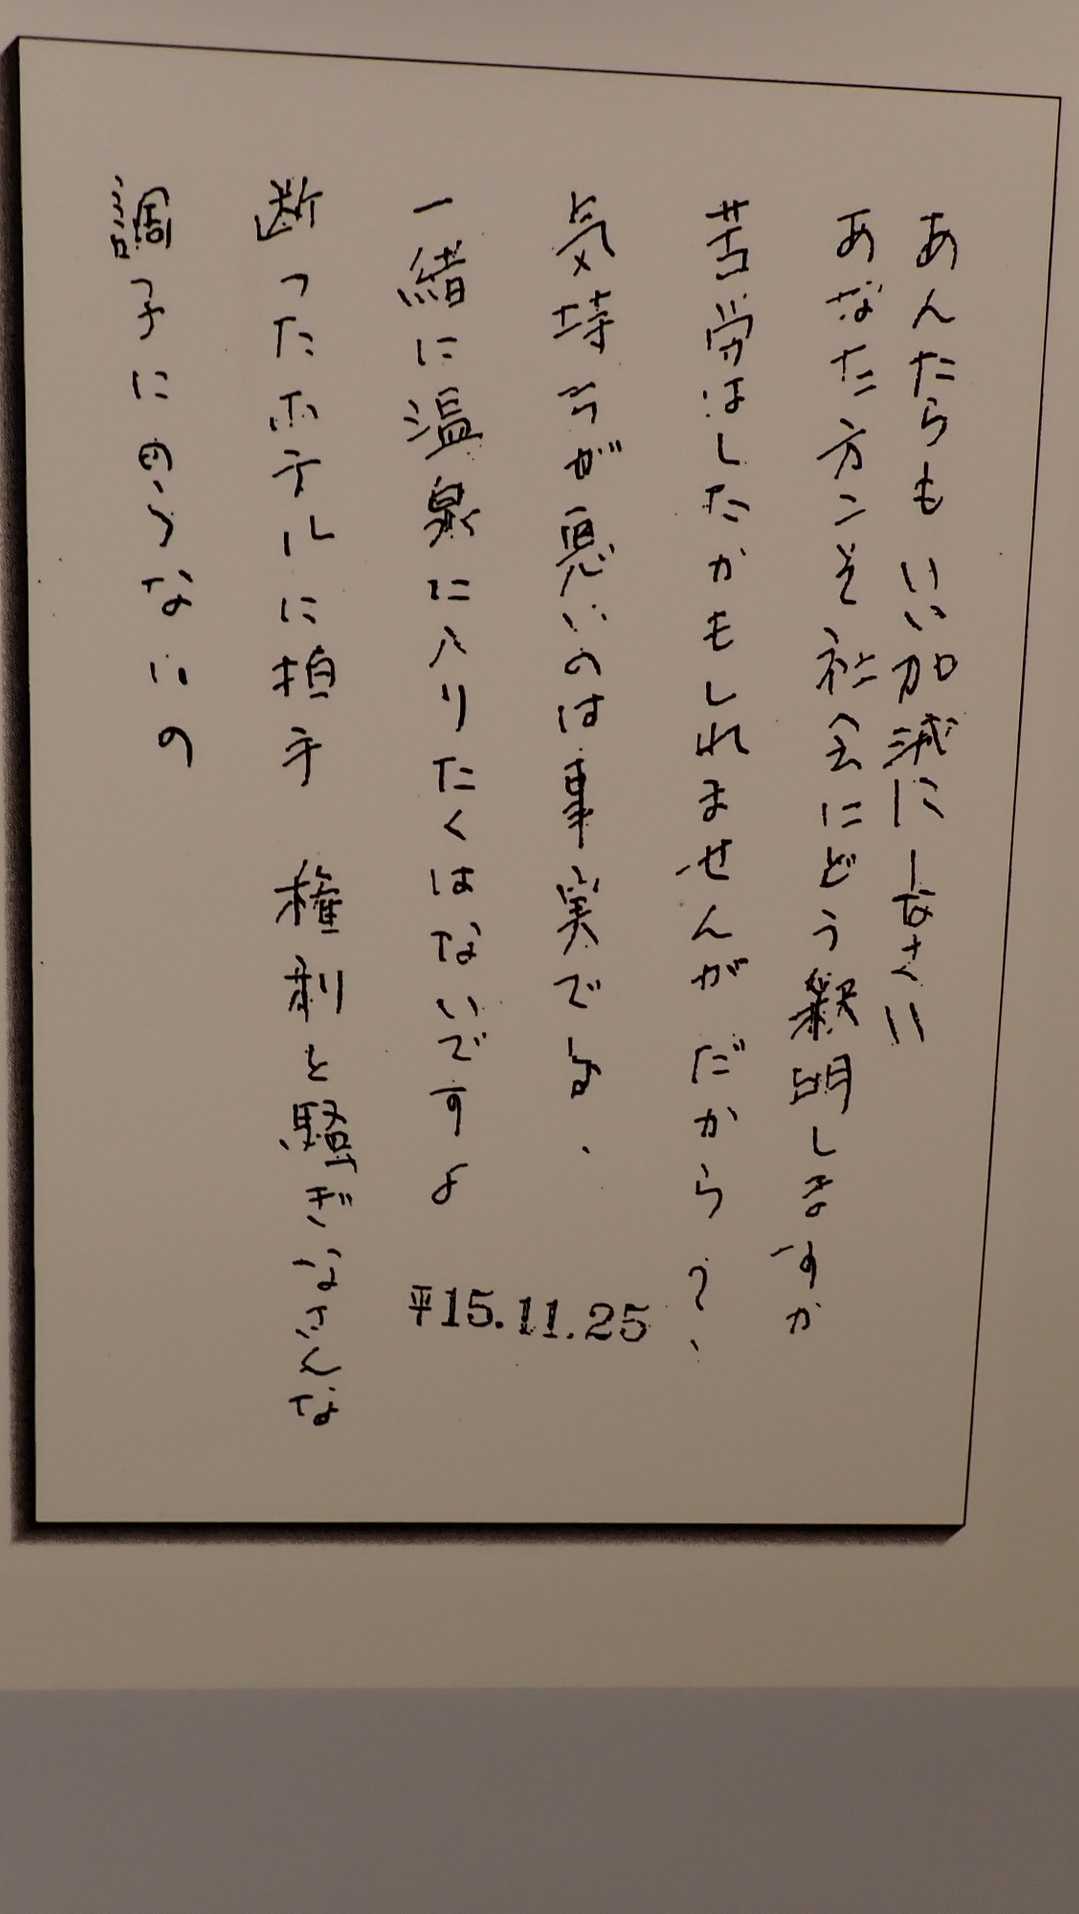 あんたらもいい加減にしなさい
あなた方こそ社会にどう釈明しますか
苦労はしたかもしれませんがだから?、
気持ちが悪いのは事実である、
一緒に温泉に入りたくはないですよ
断ったホテルに拍手 権利と騒ぎなさんな
調子にのらないの
平15.11.25